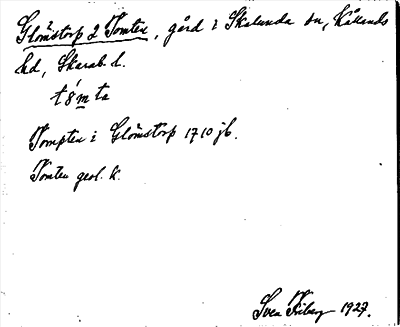 Glömstorp 2 Tomten, gård i Skalunda sn, Kållands
hd, Skarab. l.
Tompten i Glömstorp 1710 jb.
Tomten geol. k.
Sven Friberg 1927.